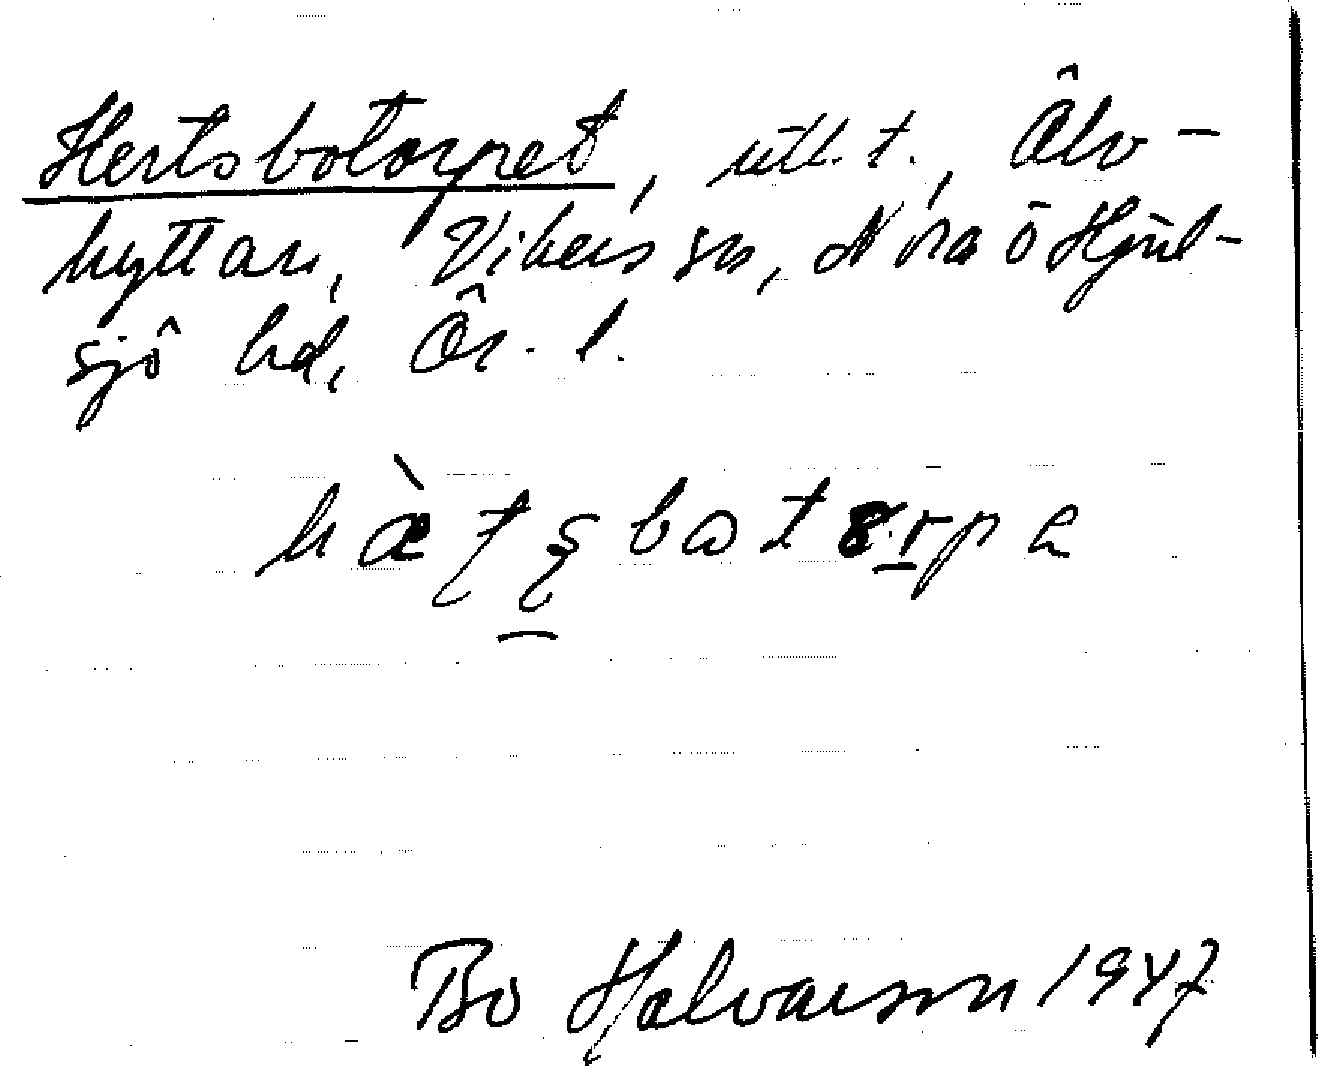 Hertsbotorpet, utt. t., Älv-
hyttan, Vikers sn, Nora o Hjul-
sjö hd, Ör. l.
hæ̀ʈʂbɷtɞrpe
Bo Halvarson 1947